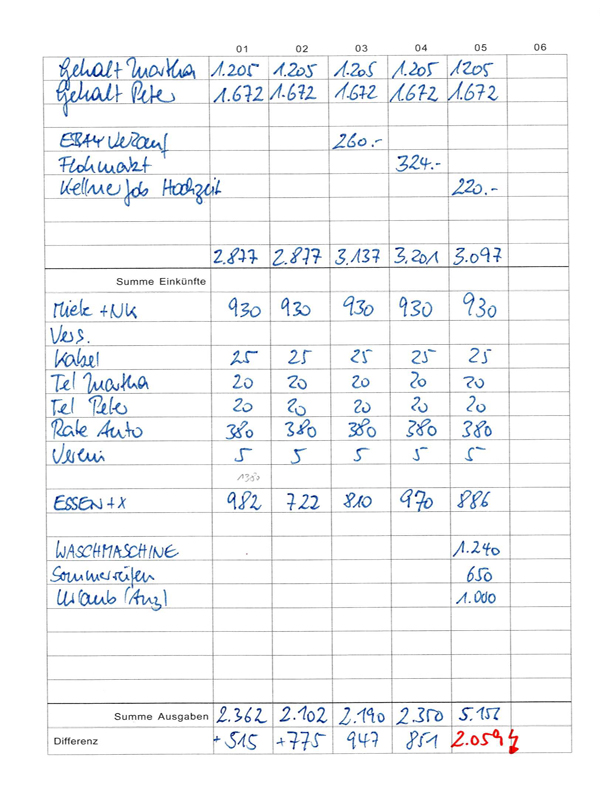 01 02 03 04 05 06
Gehalt Martha 1.205 1.205 1.205 1.205 1205
Gehalt Peter 1.672 1.672 1.672 1.672 1.672
EBAY Verkauf 260.-
Flohmarkt 324.-
Kellner Job Hochzeit 220.-
2.877 2.877 3.137 3.201 3.097
Summe Einkünfte
Miete + NK 930 930 930 930 930
Vers.
Kabel 25 25 25 25 25
Tel Martha 20 20 20 20 20
Tel Peter 20 20 20 20 20
Rate Auto 380 380 380 380 380
Verein 5 5 5 5 5
1380
ESSEN + X 982 722 810 970 886
WASCHMASCHINE 1.240
Sommerreifen 650
Urlaub (Anz) 1.000
Summe Ausgaben 2.362 2.102 2.190 2.350 5.156
Differenz + 515 +775 947 851 2.059